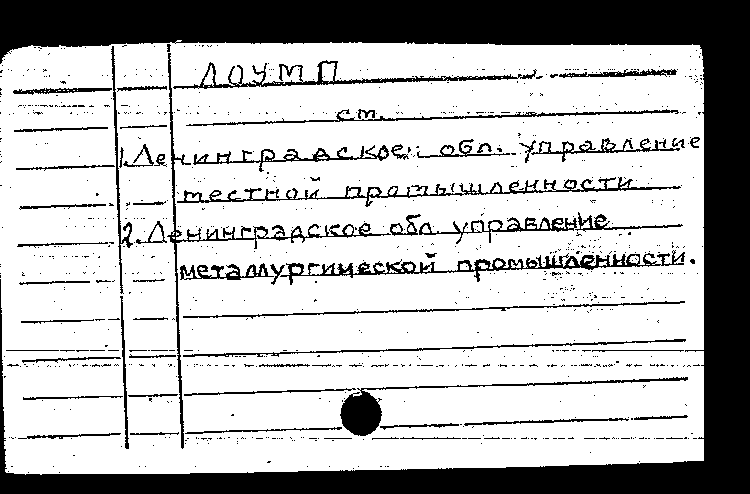 ЛОУМП
см.
1. Ленинградское обл. управление
местной промышленности
2. Ленинградское обл управление
металлургической промышленности.